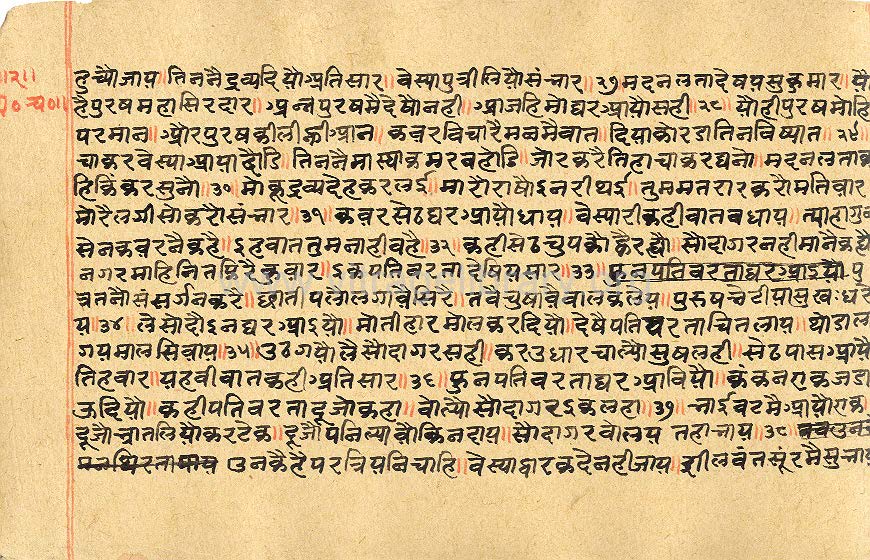 ॥२॥
च०
तुच्यौजाय॥तिननैद्रव्यदियौप्रतिसार॥वेस्यापुत्रीलियौसंचार॥२७॥मदनलतादेषयसुकुमार॥
हैपुरषमहासिरदार॥अन्यपुरषमैदेष्योनही॥आजहिमोघरआयौसही॥२८॥योहीपुरषमोहि
परमान॥औरपुरषकीलीन्ही आन॥कवरविचारैमनमैवात॥दियाकोरडातिनविष्यात॥२९॥
चाकरवेस्याआयादौडि॥तिननैमास्याकमरवहोडि॥जोरकरैतिहाचाकरघनो॥मदनलता
हिकिंकरसुनो॥३०॥मोकूद्रव्यदेहकरलई॥मारौराषौइनरीथई॥तुममतरारकरौमतिवार
मोरैलगीसोकरौसंचार॥३१॥कवरसेठघरआयौधाय॥वेस्यारीकहीवातवधाय॥त्याहागुन
सेनकवरनैकहै॥इहवाततुमनाहीवहै॥३२॥कहीसेठचुपकोह्वैरह्यौ॥सौदागरनहीमानैकह्यौ
नगरमाहिनितफिरैकवार॥इकपतिवरतादेषिअसार॥३३॥फुनपतिवरताघरआइयौ॥पु
त्रतनौसंसर्गनकरै॥छातीपलालगावैसरै॥तवैचुषावैवालकलेय॥पुरुषचेटीपासुखःधरे
य॥३४॥लेसोदौइनघरआइयौ॥मोतीहारमोलकरदियौ॥देषैपतिवरताचितलाय॥थोडाल
गयमालसिवाय॥३५॥उठगयौलैसौदागरसही॥करउधारचाल्यौसुषलही॥सेठपासआयौ
तिहवार॥यहवीवातकहीअतिसार॥३६॥फुनपतिवरताघरआवियौ॥कंकनएकजडा
ऊदियौ॥कहीपतिवरतादूजोकहा॥वोल्यौसौदागरइकलहा॥३७॥चाईवटमैआयौएक
दूजौभ्रातलियौकरटेक॥दूजौपंनिल्यावौकिनदाय॥सौदागरवोलयतहाचाय॥३८॥
उनकैहैपरत्रियनिचाहि॥वेस्याद्वारकदेनहीजाय॥शीलवंतसूरमैसुचाय